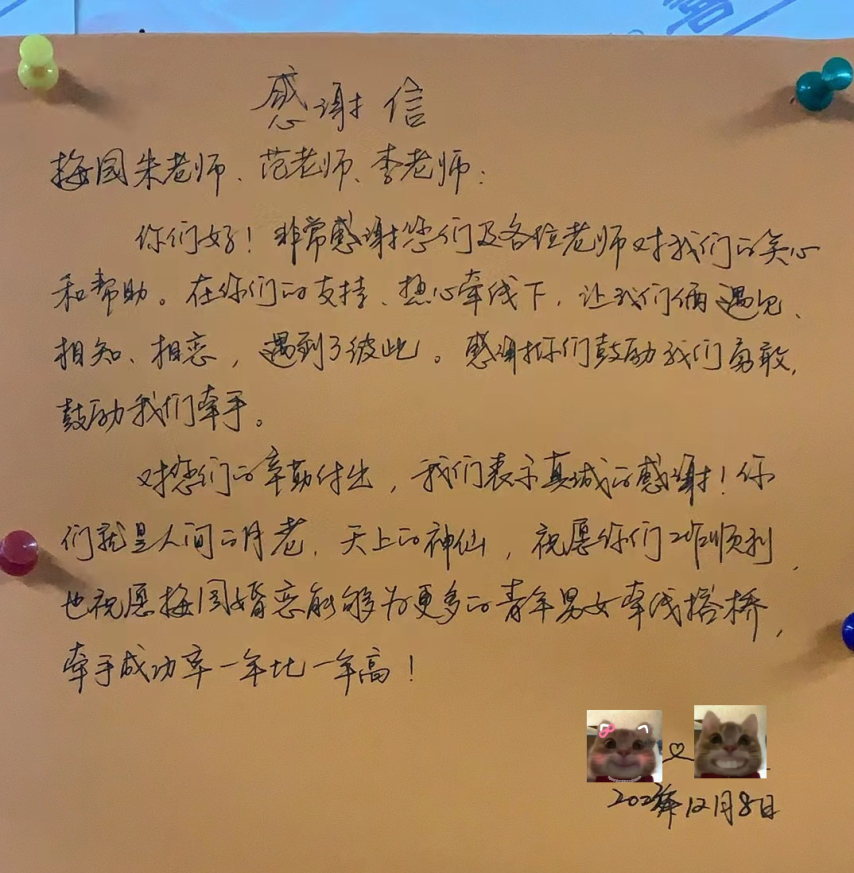 感谢信
梅园朱老师、范老师、李老师：
你们好！非常感谢您们及各位老师对我们的关心
和帮助。在你们的支持、热心牵线下，让我们俩遇见、
相知、相恋，遇到了彼此。感谢你们鼓励我们勇敢，
鼓励我们牵手。
对您们的辛勤付出，我们表示真诚的感谢！你
们就是人间的月老，天上的神仙，祝愿你们工作顺利，
也祝愿梅园婚恋能够为更多的青年男女牵线搭桥，
牵手成功率一年比一年高！
年12月8日